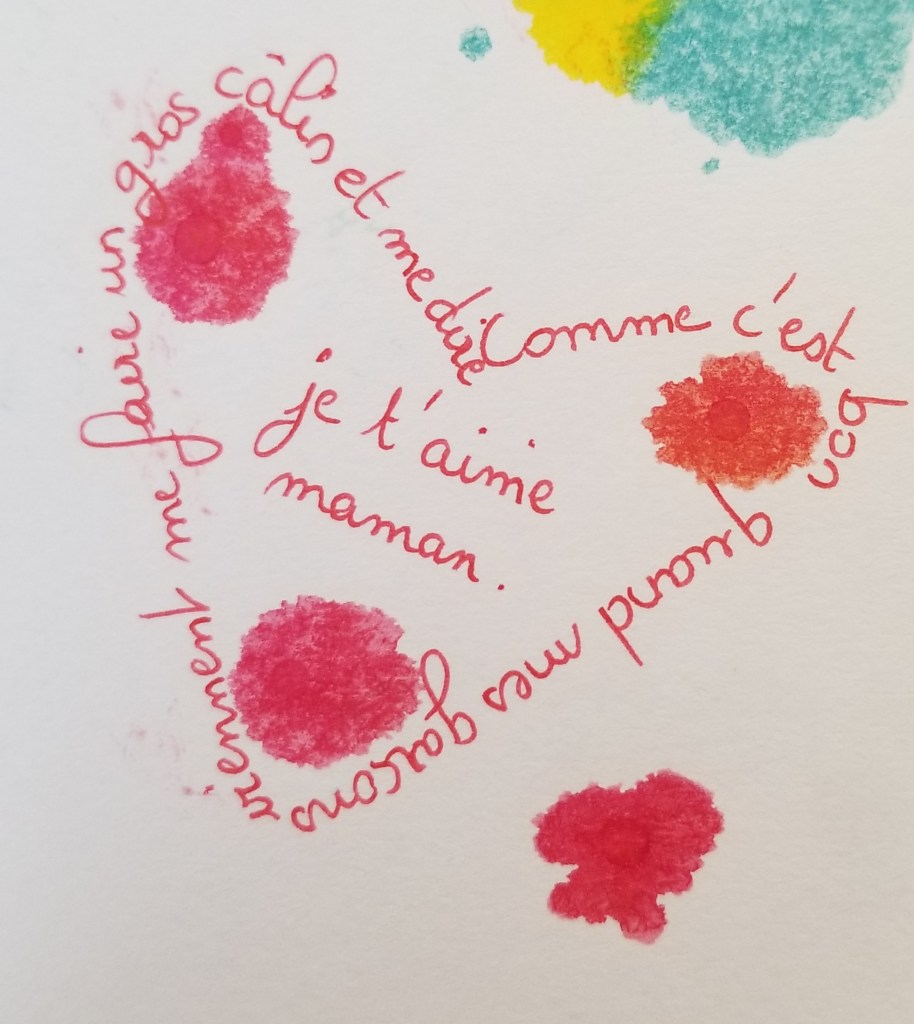 Comme c'est bon quand mes garçons viennent me faire un gros câlin et me dire
je t'aime
maman.